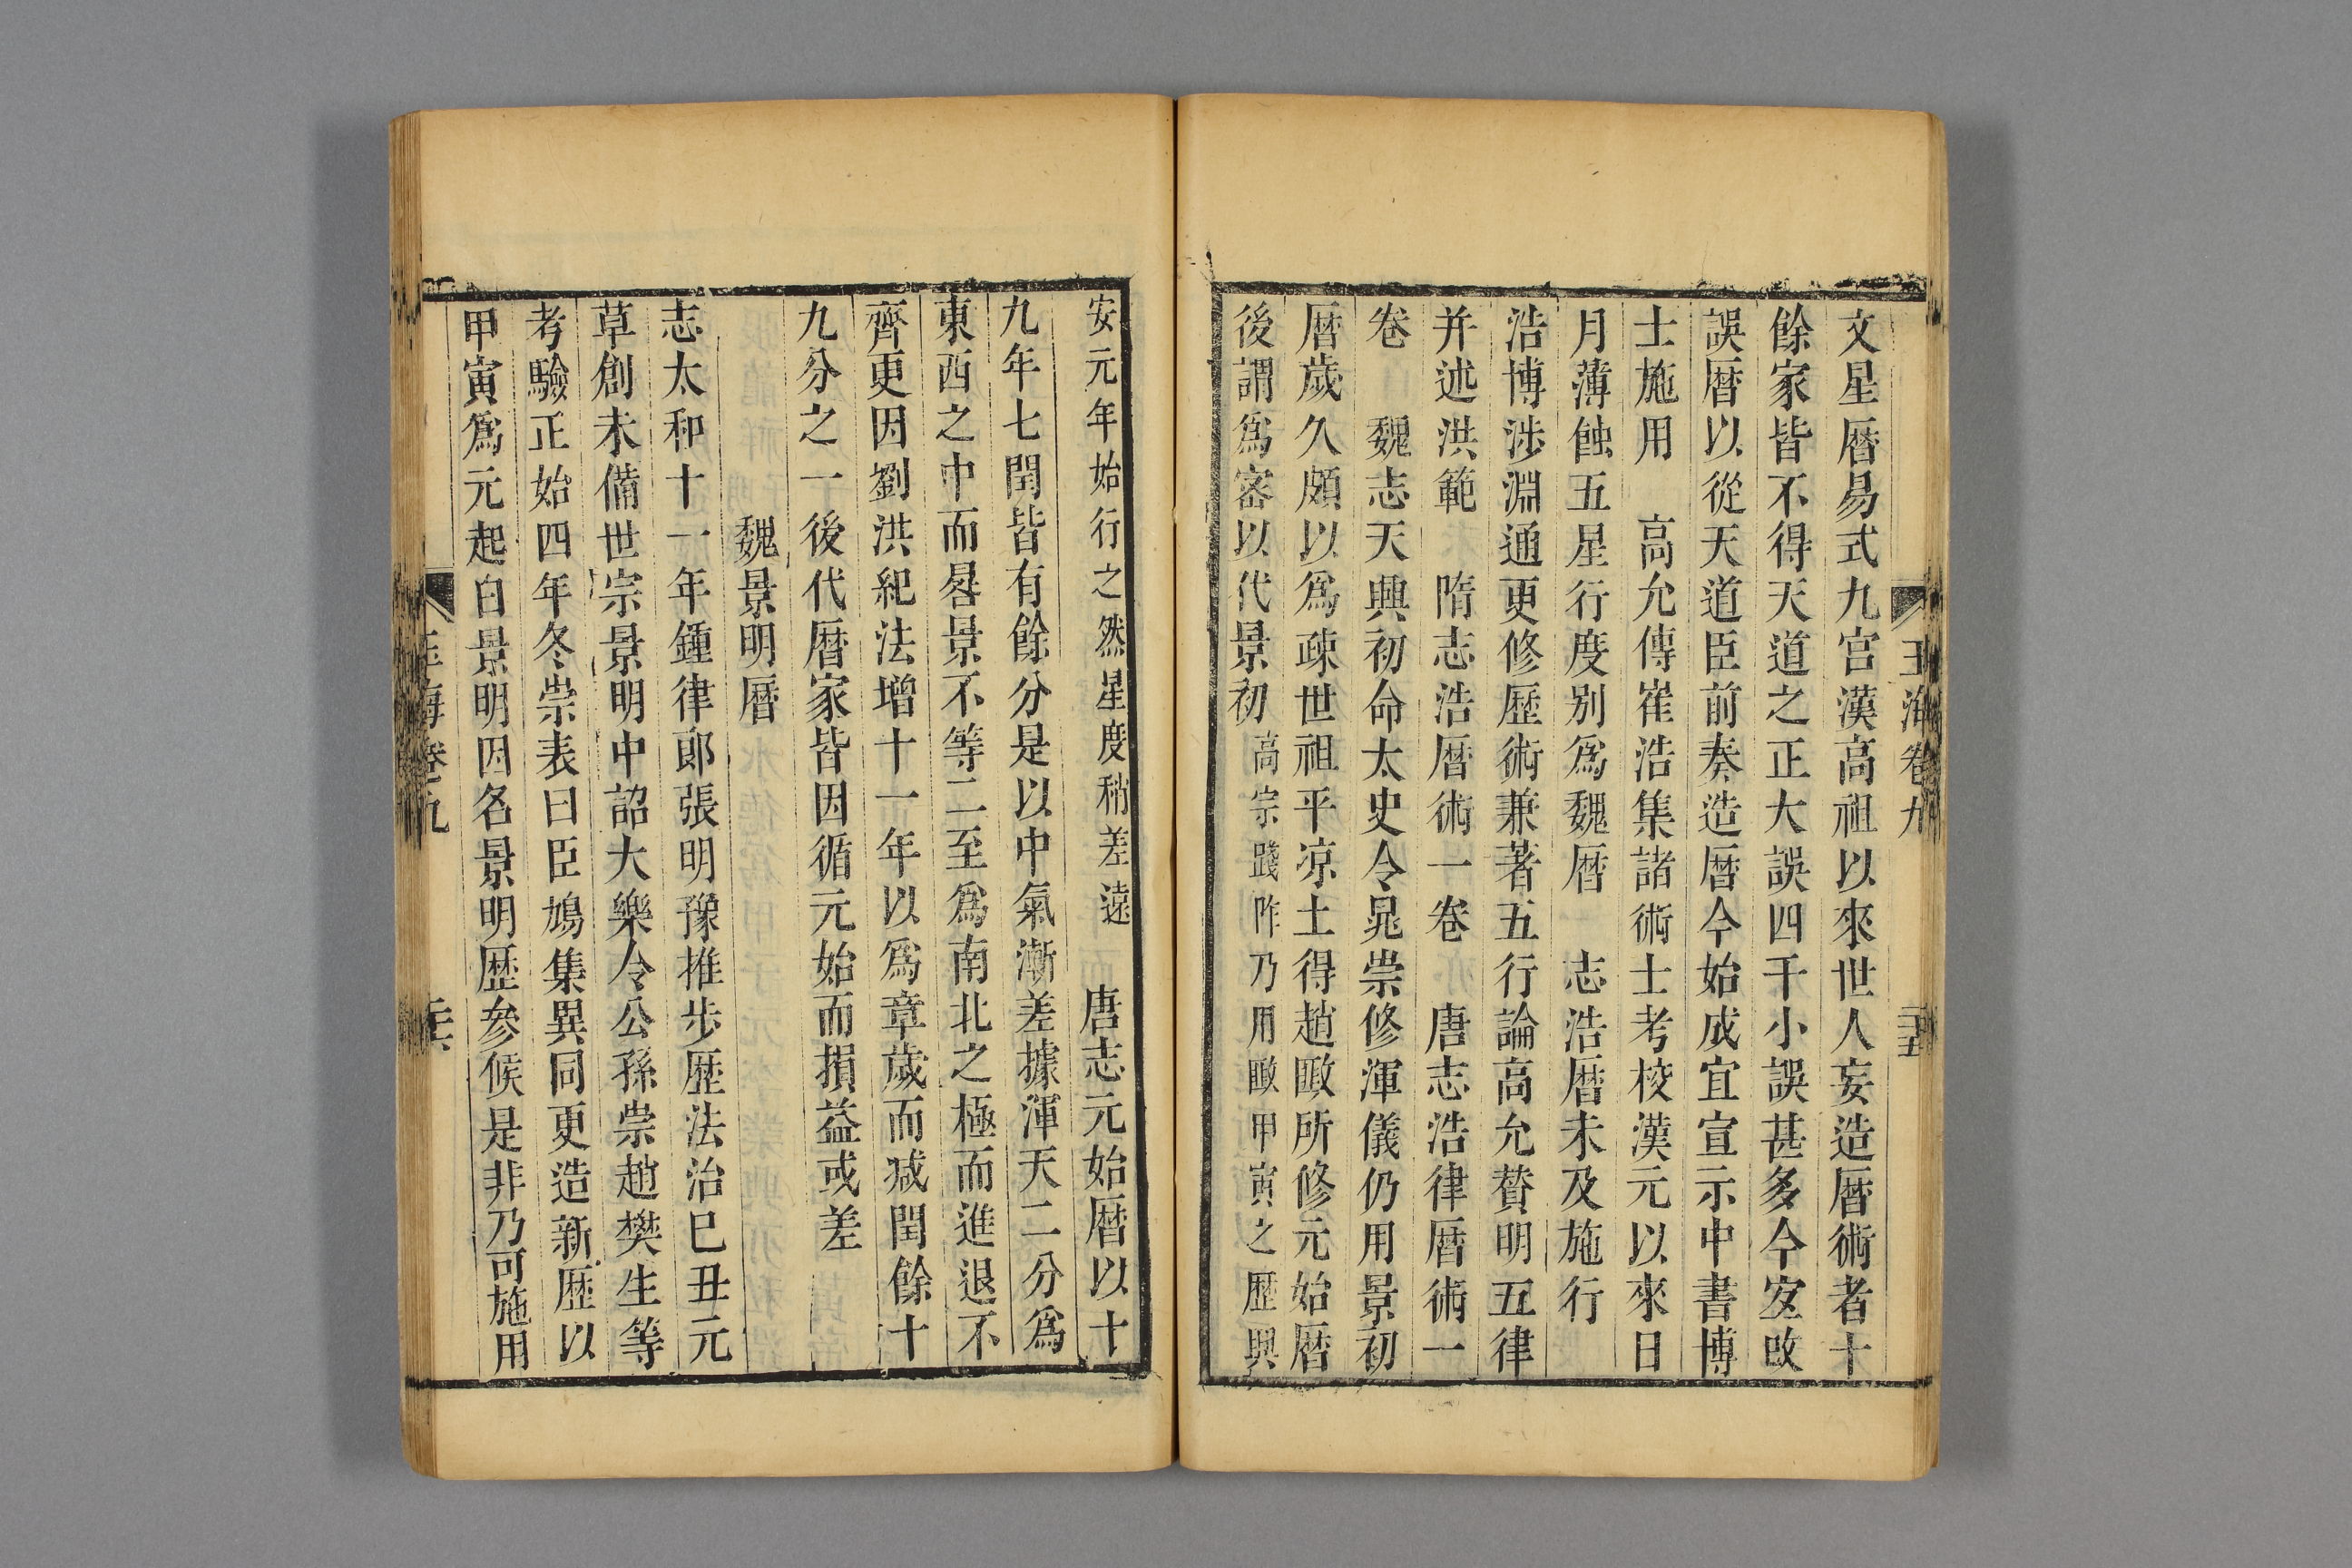 玉海卷九 二十五
文星曆易式九宫漢高祖以來世人妄造曆術者十
餘家皆不得天道之正大誤四千小誤甚多今宜改
誤曆以從天道臣前奏造曆今始成宜宣示中書博
士施用 高允傳崔浩集諸術士考校漢元以來日
月薄蝕五星行度别爲魏曆 志浩曆未及施行
浩博涉淵通更修歷術兼著五行論高允賛明五律
并述洪範 隋志浩曆術一卷 唐志浩律曆術一
卷 魏志天興初命太史令晁崇修渾儀仍用景初
曆歲久頗以爲疎世祖平凉土得趙𢾺所修元始曆
後謂爲密以代景初高宗踐阼乃用𢾺甲寅之歷興
安元年始行之然星度稍差遠 唐志元始曆以十
九年七閏皆有餘分是以中氣漸差據渾天二分爲
東西之中而晷景不等二至爲南北之極而進退不
齊更因劉洪紀法增十一年以爲章歲而減閏餘十
九分之一後代曆家皆因循元始而損益或差
魏景明曆
志太和十一年鍾律郎張明豫推步歷法治巳丑元
草創未備世宗景明中詔大樂令公孫崇趙樊生等
考驗正始四年冬崇表曰臣鳩集異同更造新歷以
甲寅爲元起自景明因名景明歷參候是非乃可施用
玉海卷九 二十六